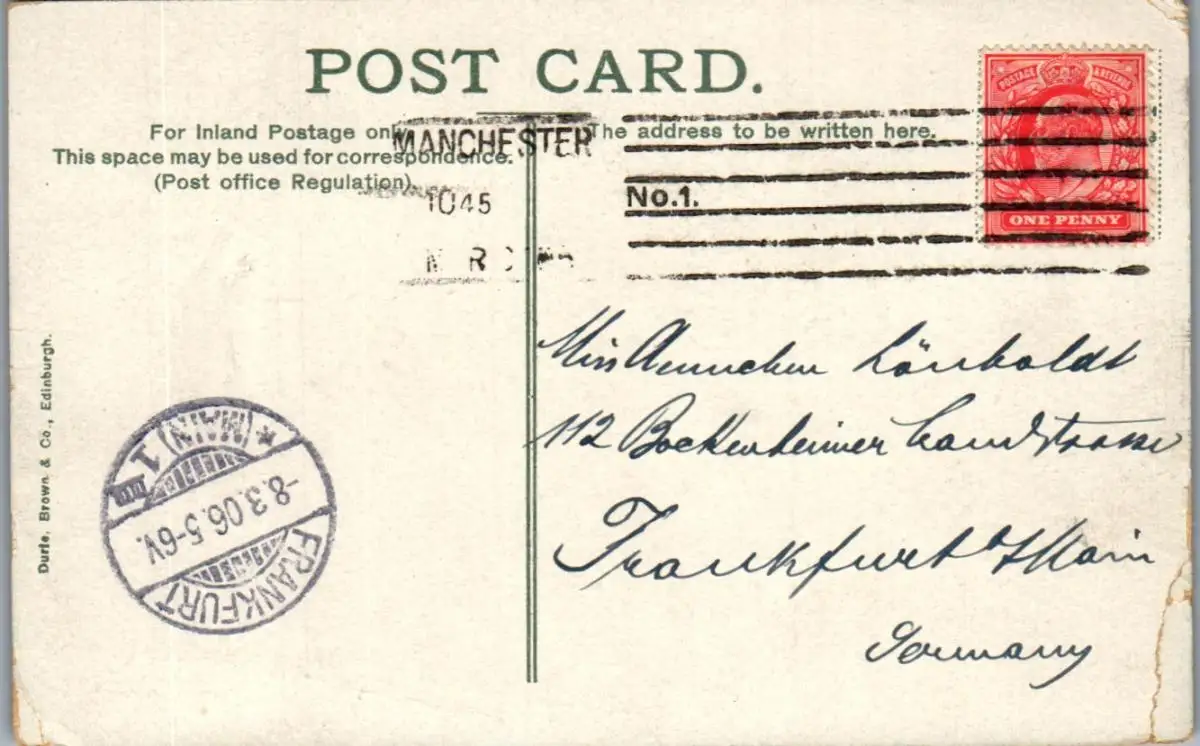 POST CARD.
POSTAGE & REVENUE
ONE PENNY
For Inland Postage only
This space may be used for correspondence.
(Post office Regulation).
The address to be written here.
MANCHESTER
1045
No.1.
Miss Annchen
112 Bockenheimer Landstrasse
Frankfurt a/Main
Germany
Durie, Brown & Co., Edinburgh.
FRANKFURT
-8.3.06.5-6V.
(MAIN) 1